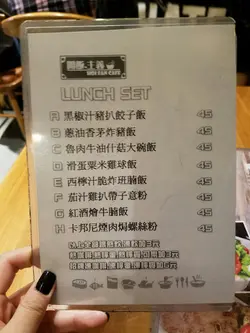 開飯主義
HOI FAN CAFE
LUNCH SET
A 黑椒汁豬扒餃子飯 45
B 蔥油香茅炸豬飯 45
C 魯肉牛油什菇大碗飯 45
D 滑蛋粟米雞球飯 45
E 西檸汁脆炸班腩飯 45
F 茄汁雞扒帶子意粉 45
G 紅酒燴牛腩飯 45
H 卡邦尼煙肉焗螺絲粉 45